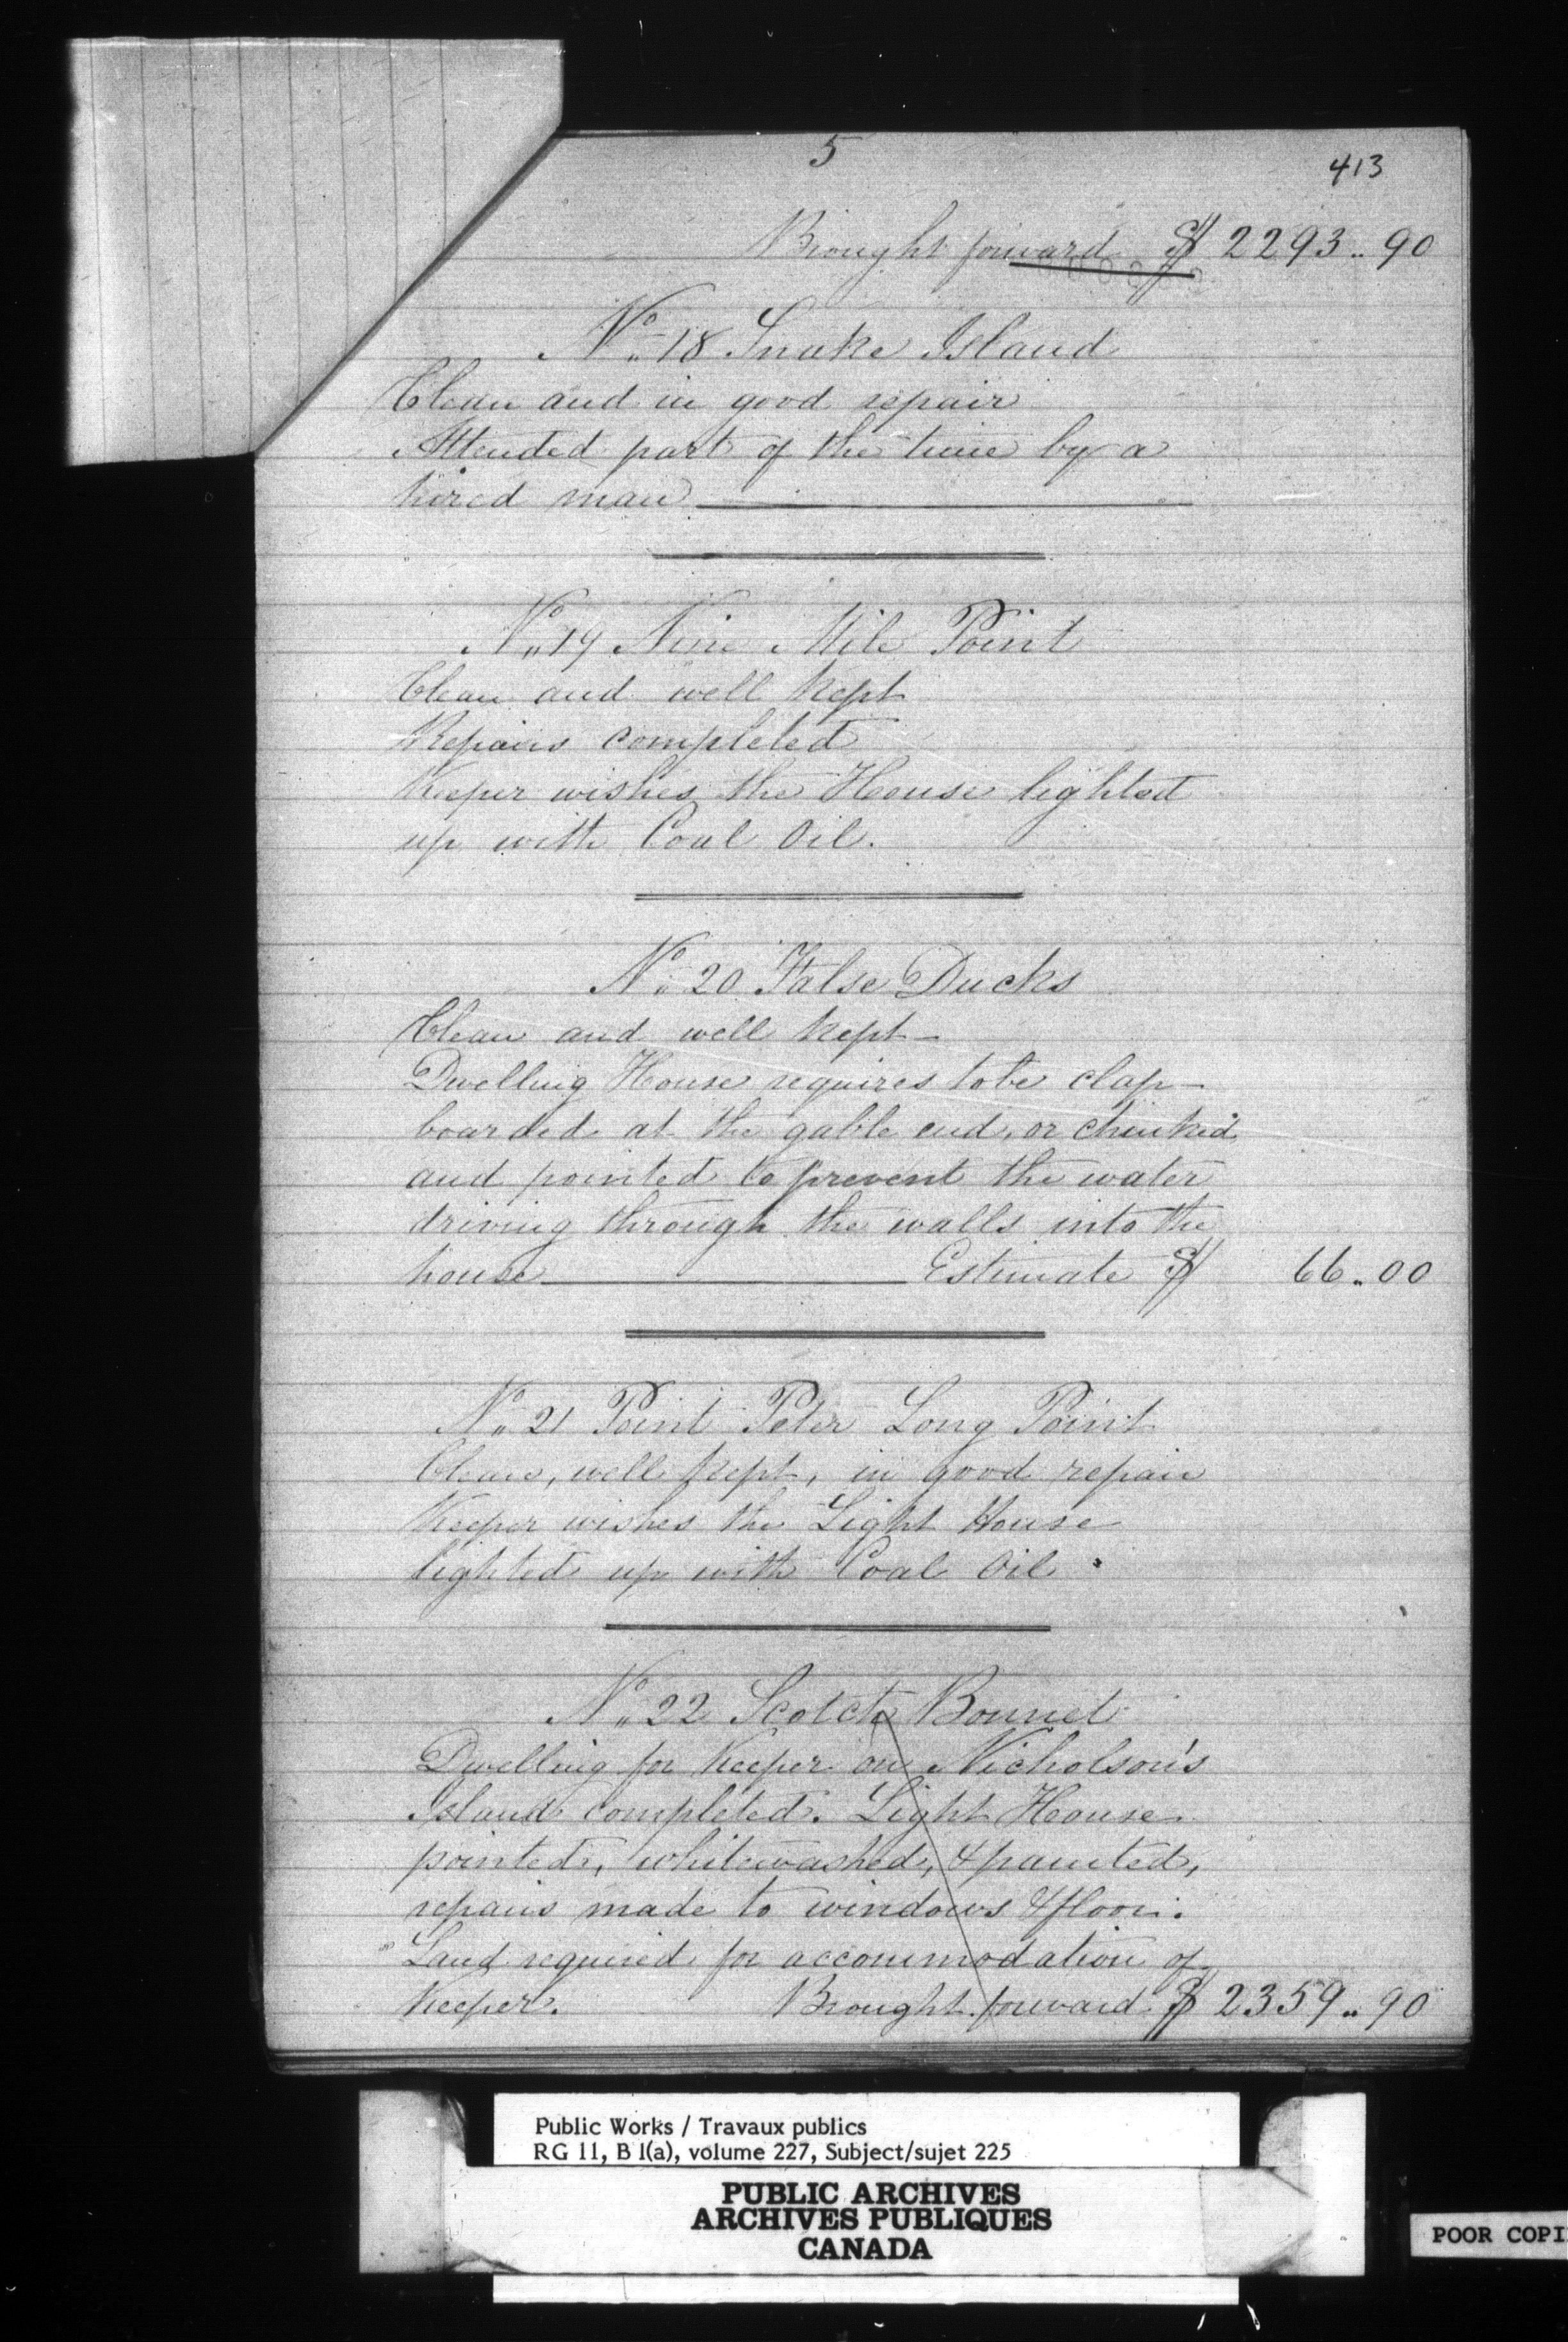 5
413
Brought forward $ 2293.. 90
No. 18 Snake Island
Clean and in good repair
Attended part of the time by a
hired man
No. 19 Nine Mile Point
Clean and well kept
Repairs completed
Keeper wishes the House lighted
up with Coal Oil.
No. 20 False Ducks
Clean and well kept -
Dwelling House requires to be clap-
boarded at the gable end, or chinked
and pointed to prevent the water
driving through the walls into the
house Estimate $ 66.. 00
No. 21 Point Peter Long Point
Clean, well kept, in good repair
Keeper wishes the Light House
lighted up with Coal Oil.
No. 22 Scotch Bonnet
Dwelling for Keeper on Nicholson's
Island completed. Light House
pointed, whitewashed, & painted,
repairs made to windows & floor.
Land required for accommodation of
Keeper. Brought forward $ 2359.. 90
Public Works / Travaux publics
RG 11, B 1(a), volume 227, Subject/sujet 225
PUBLIC ARCHIVES
ARCHIVES PUBLIQUES
CANADA
POOR COPI